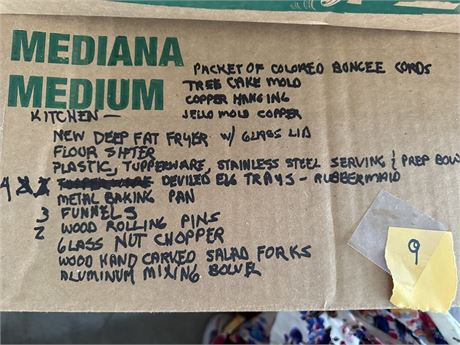 MEDIANA
MEDIUM
PACKET OF COLORED BUNGEE CORDS
TREE CAKE MOLD
COPPER HANGING
KITCHEN — JELLO MOLD COPPER
NEW DEEP FAT FRYER W/ GLASS LID
FLOUR SIFTER
PLASTIC, TUPPERWARE, STAINLESS STEEL SERVING & PREP BOW
4 DEVILED EGG TRAYS - RUBBERMAID
METAL BAKING PAN
3 FUNNELS
2 WOOD ROLLING PINS
GLASS NUT CHOPPER
WOOD HAND CARVED SALAD FORKS
ALUMINUM MIXING BOWL
9